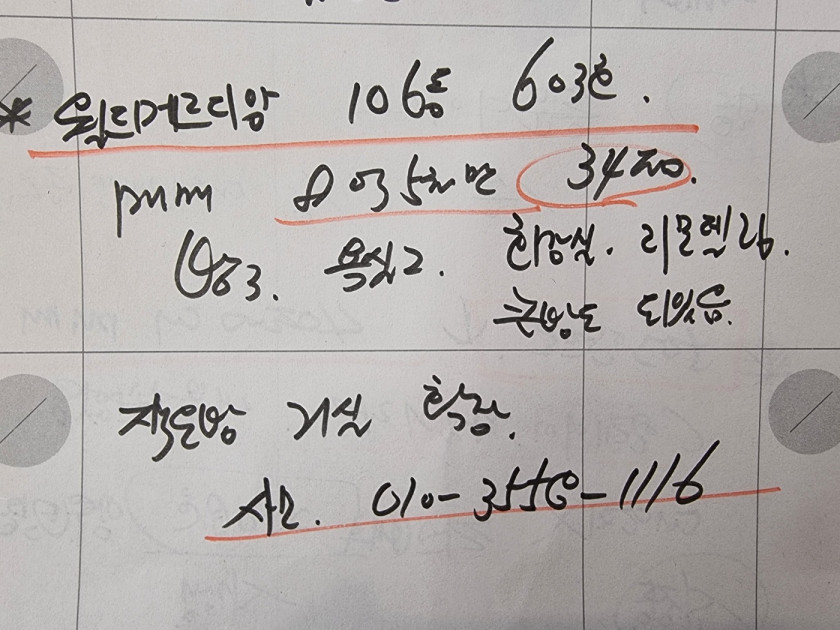 * 월드메르디앙 106동 603호.
매매 8억 3천5백만 34평.
방3. 욕실2. 화장실. 리모델링.
큰방도 되있음.
작은방 거실 확장.
사모. 010-3556-1116